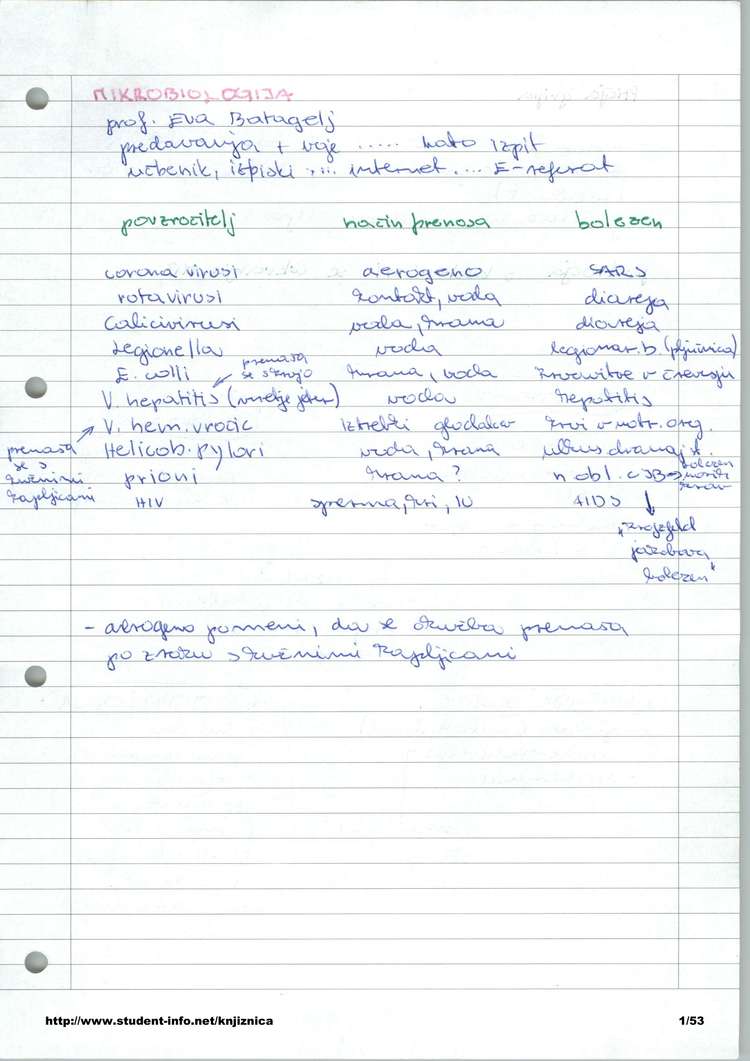 MIKROBIOLOGIJA
prof. Eva Batagelj
predavanja + vaje ..... nato izpit
učbenik, izpiski .... internet .... E-referat
povzročitelj način prenosa bolezen
corona virusi aerogeno SARS
rotavirusi kontakt, voda diareja
Calicivirusi voda, hrana diareja
Legionella voda legionar. b. (pljučnica)
E. colli hrana, voda krvavitve v črevesju
prenaša se s krvjo
V. hepatitis (vnetje jeter) voda hepatitis
V. hem. vročic iztrebki glodalcev krvi v notr. org.
Helicob. pylori voda, hrana ulkus dvanajst.
prenaša se s kužnimi kapljicami
prioni hrana? n obl. CJB → bolezen norih krav
HIV sperma, kri, IU AIDS
"Krojzfeld
jakobova
bolezen"
- aerogeno pomeni, da se okužba prenaša
po zraku s kužnimi kapljicami
http://www.student-info.net/knjiznica 1/53